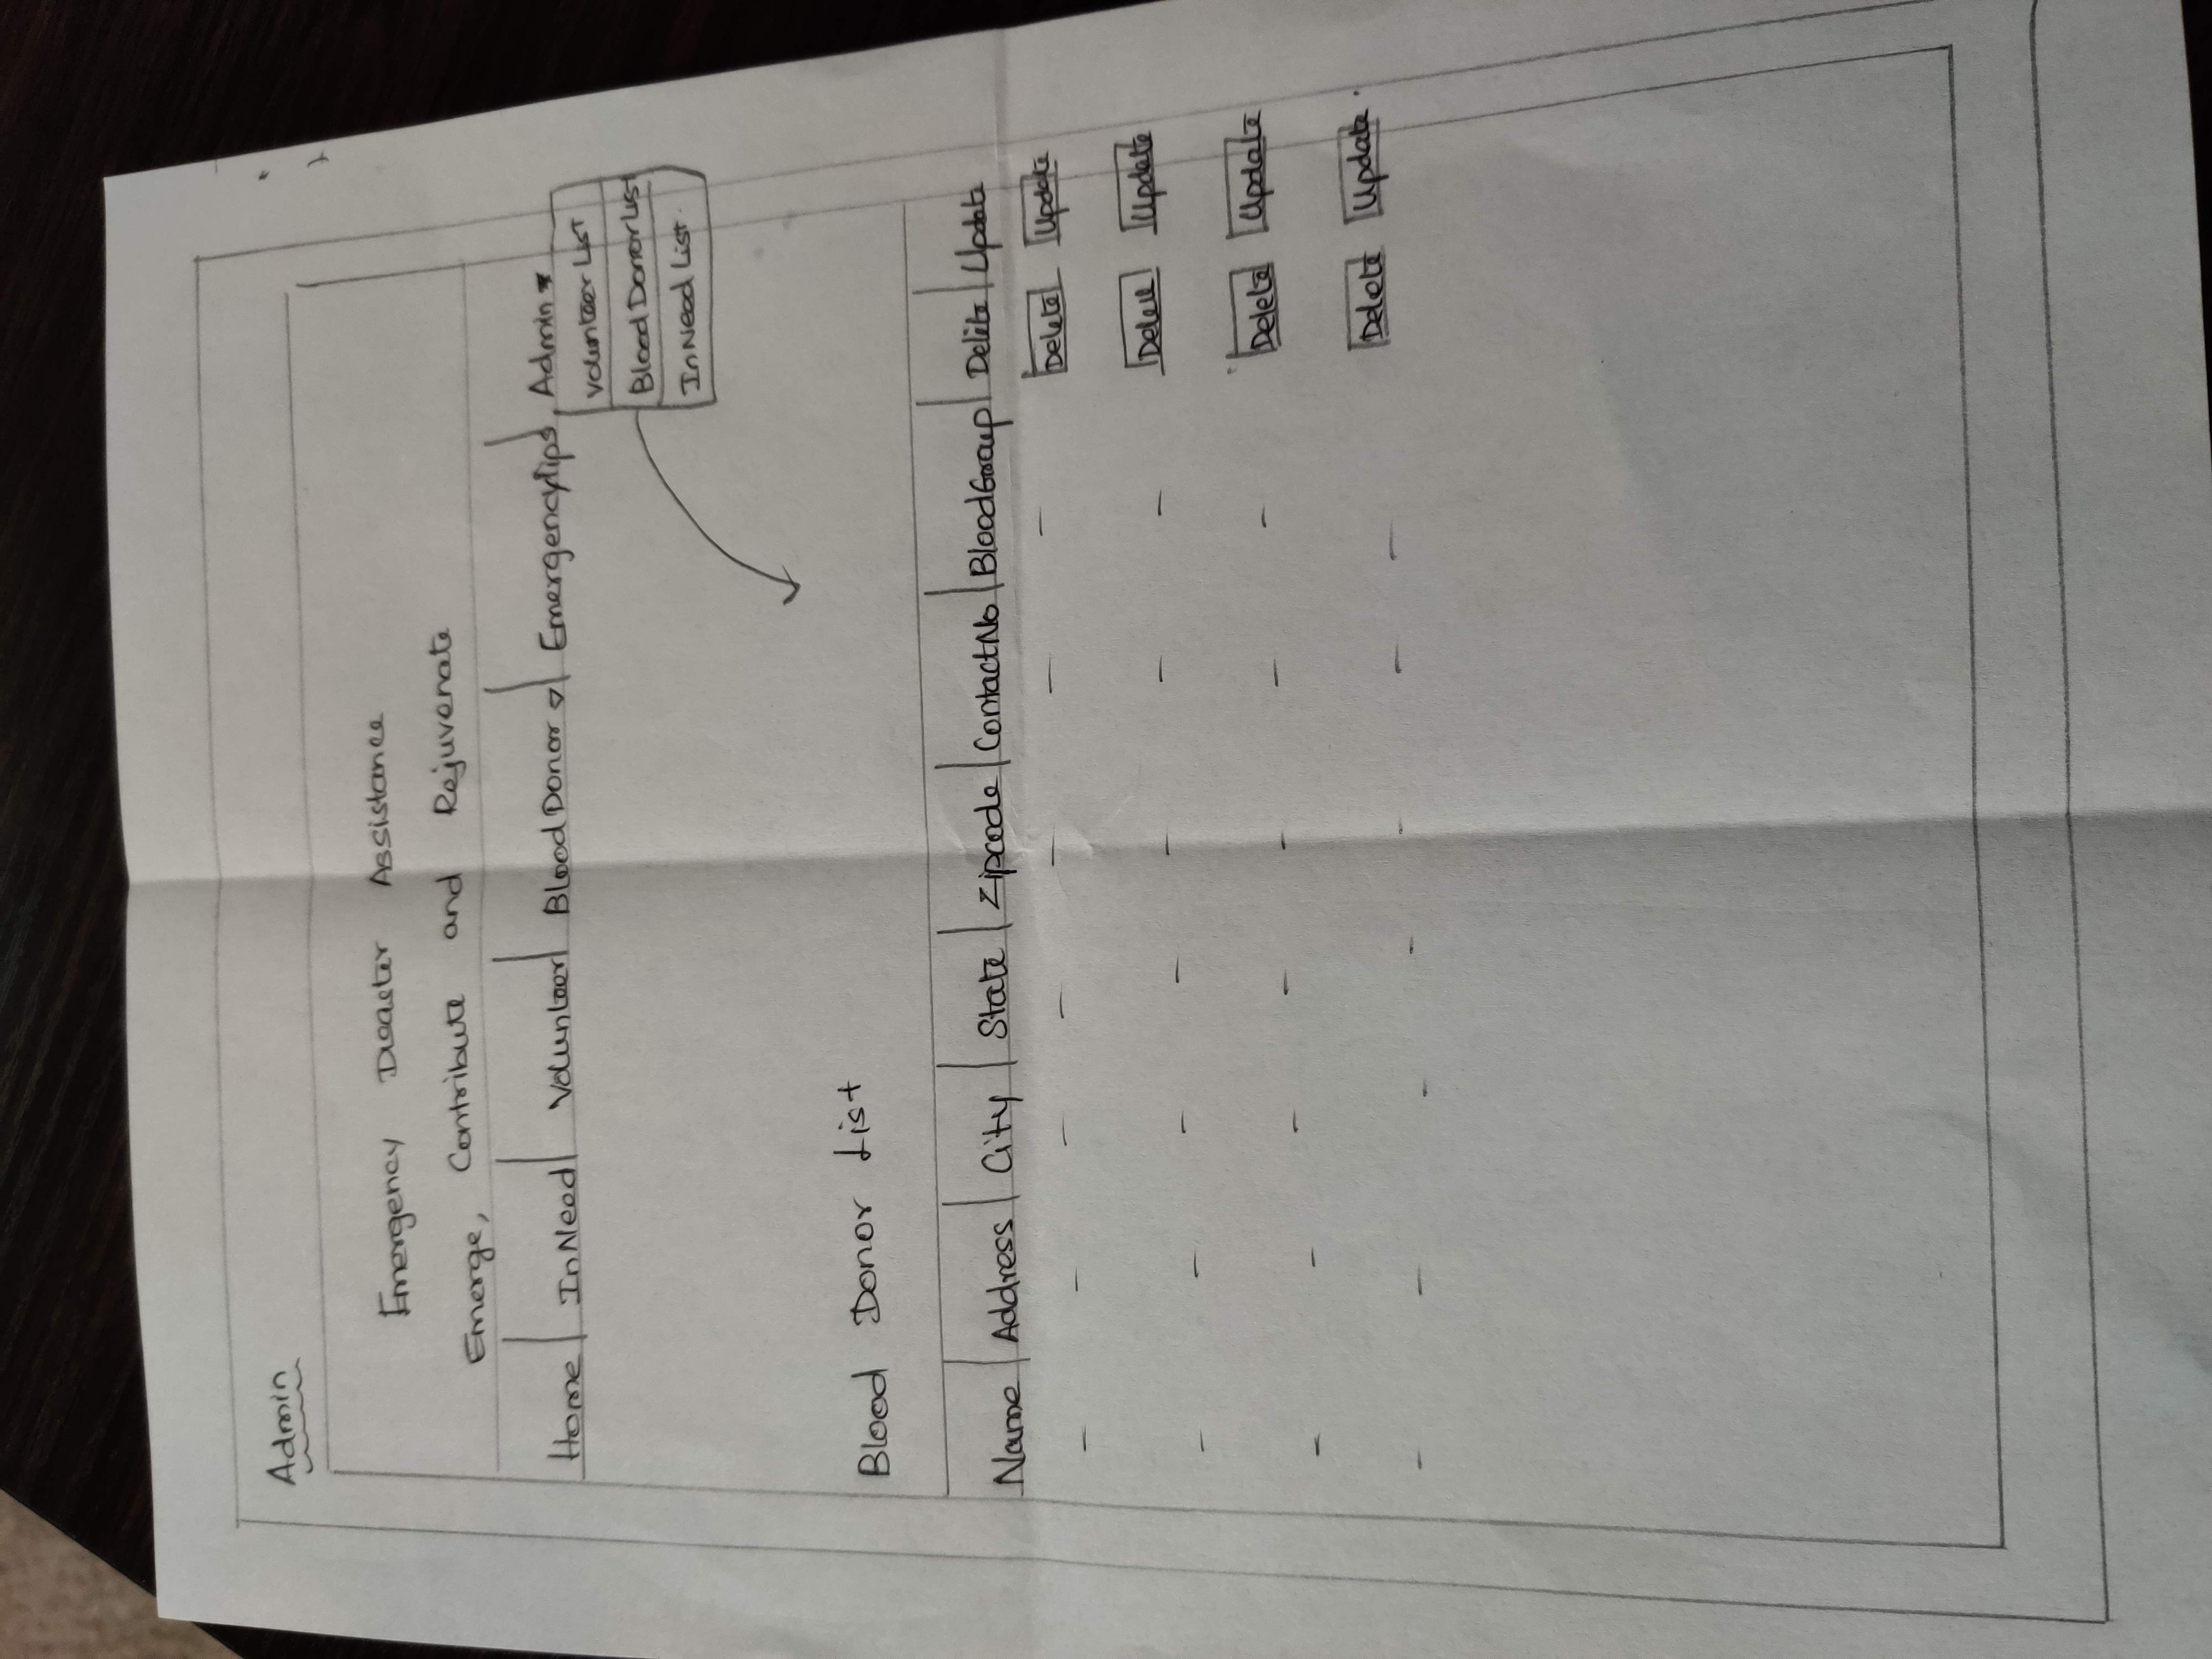 Admin
Emergency Disaster Assistance
Emerge, Contribute and Rejuvenate
Home InNeed Volunteer BloodDonor Emergencytips Admin
Volunteer List
Blood Donor List
InNeed List
Blood Donor List
Name Address City State Zipcode ContactNo BloodGroup Delete Update
- - - - - - - Delete Update
- - - - - - - Delete Update
- - - - - - - Delete Update
- - - - - - - Delete Update